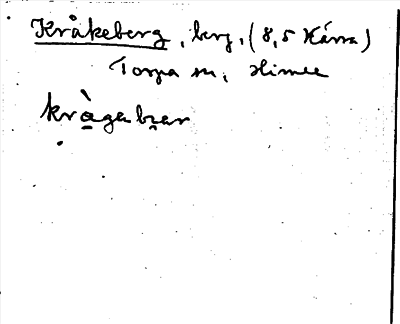 Kråkeberg, brg. (8,5 Kärra)
Torpa sn, Himle
kràgabrar